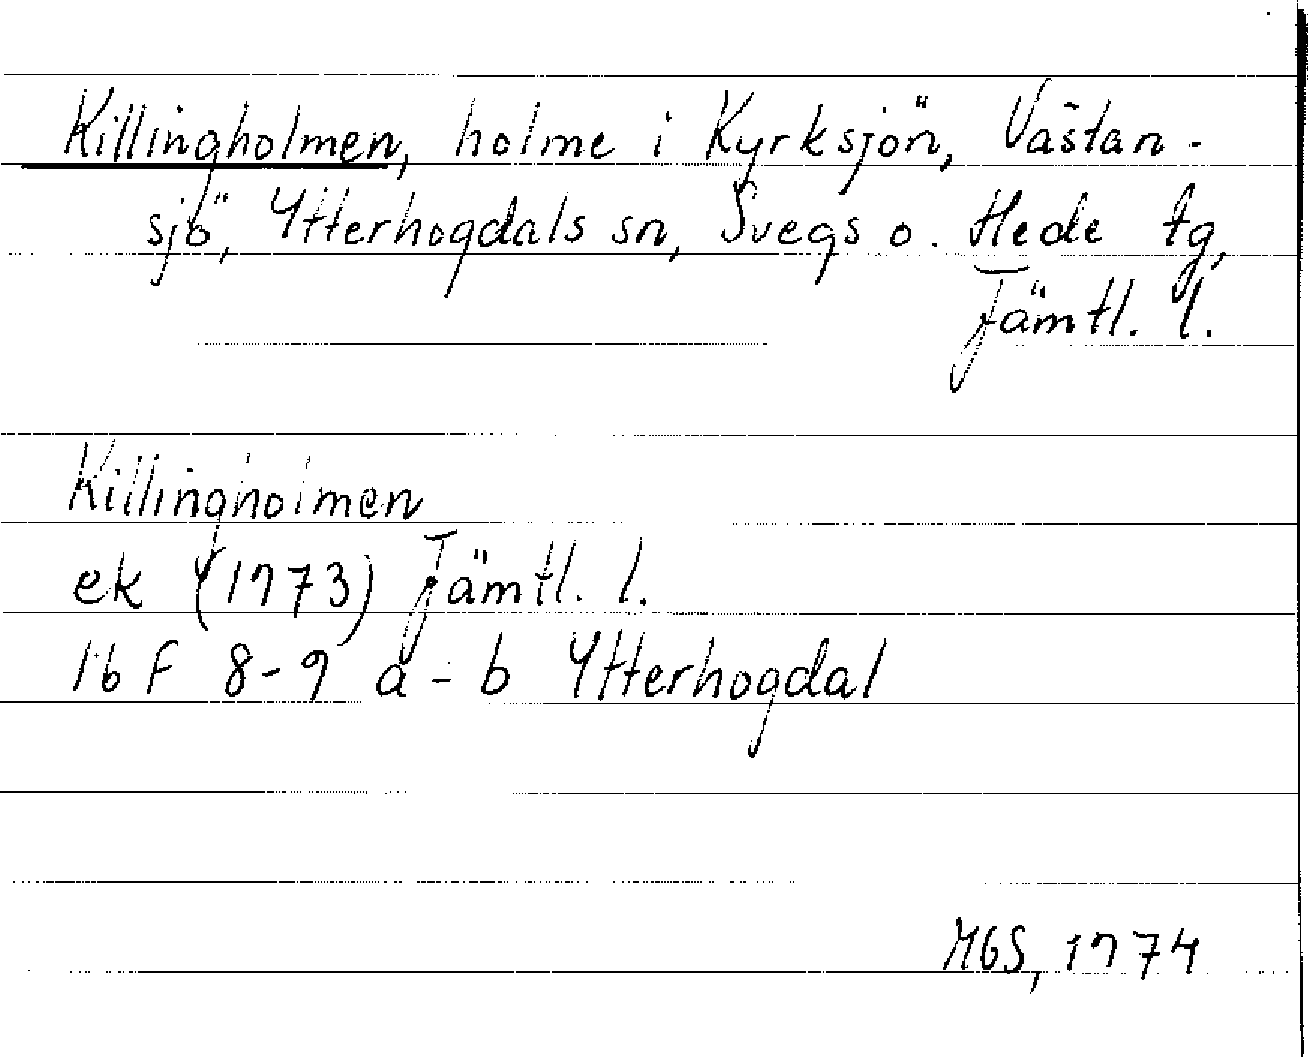 Killingholmen, holme i Kyrksjön, Västan-
sjö, Ytterhogdals sn, Svegs o. Hede tg,
Jämtl. l.
Killingholmen
ek (1973) Jämtl. l.
16 F 8-9 a-b Ytterhogdal
MGS, 1974